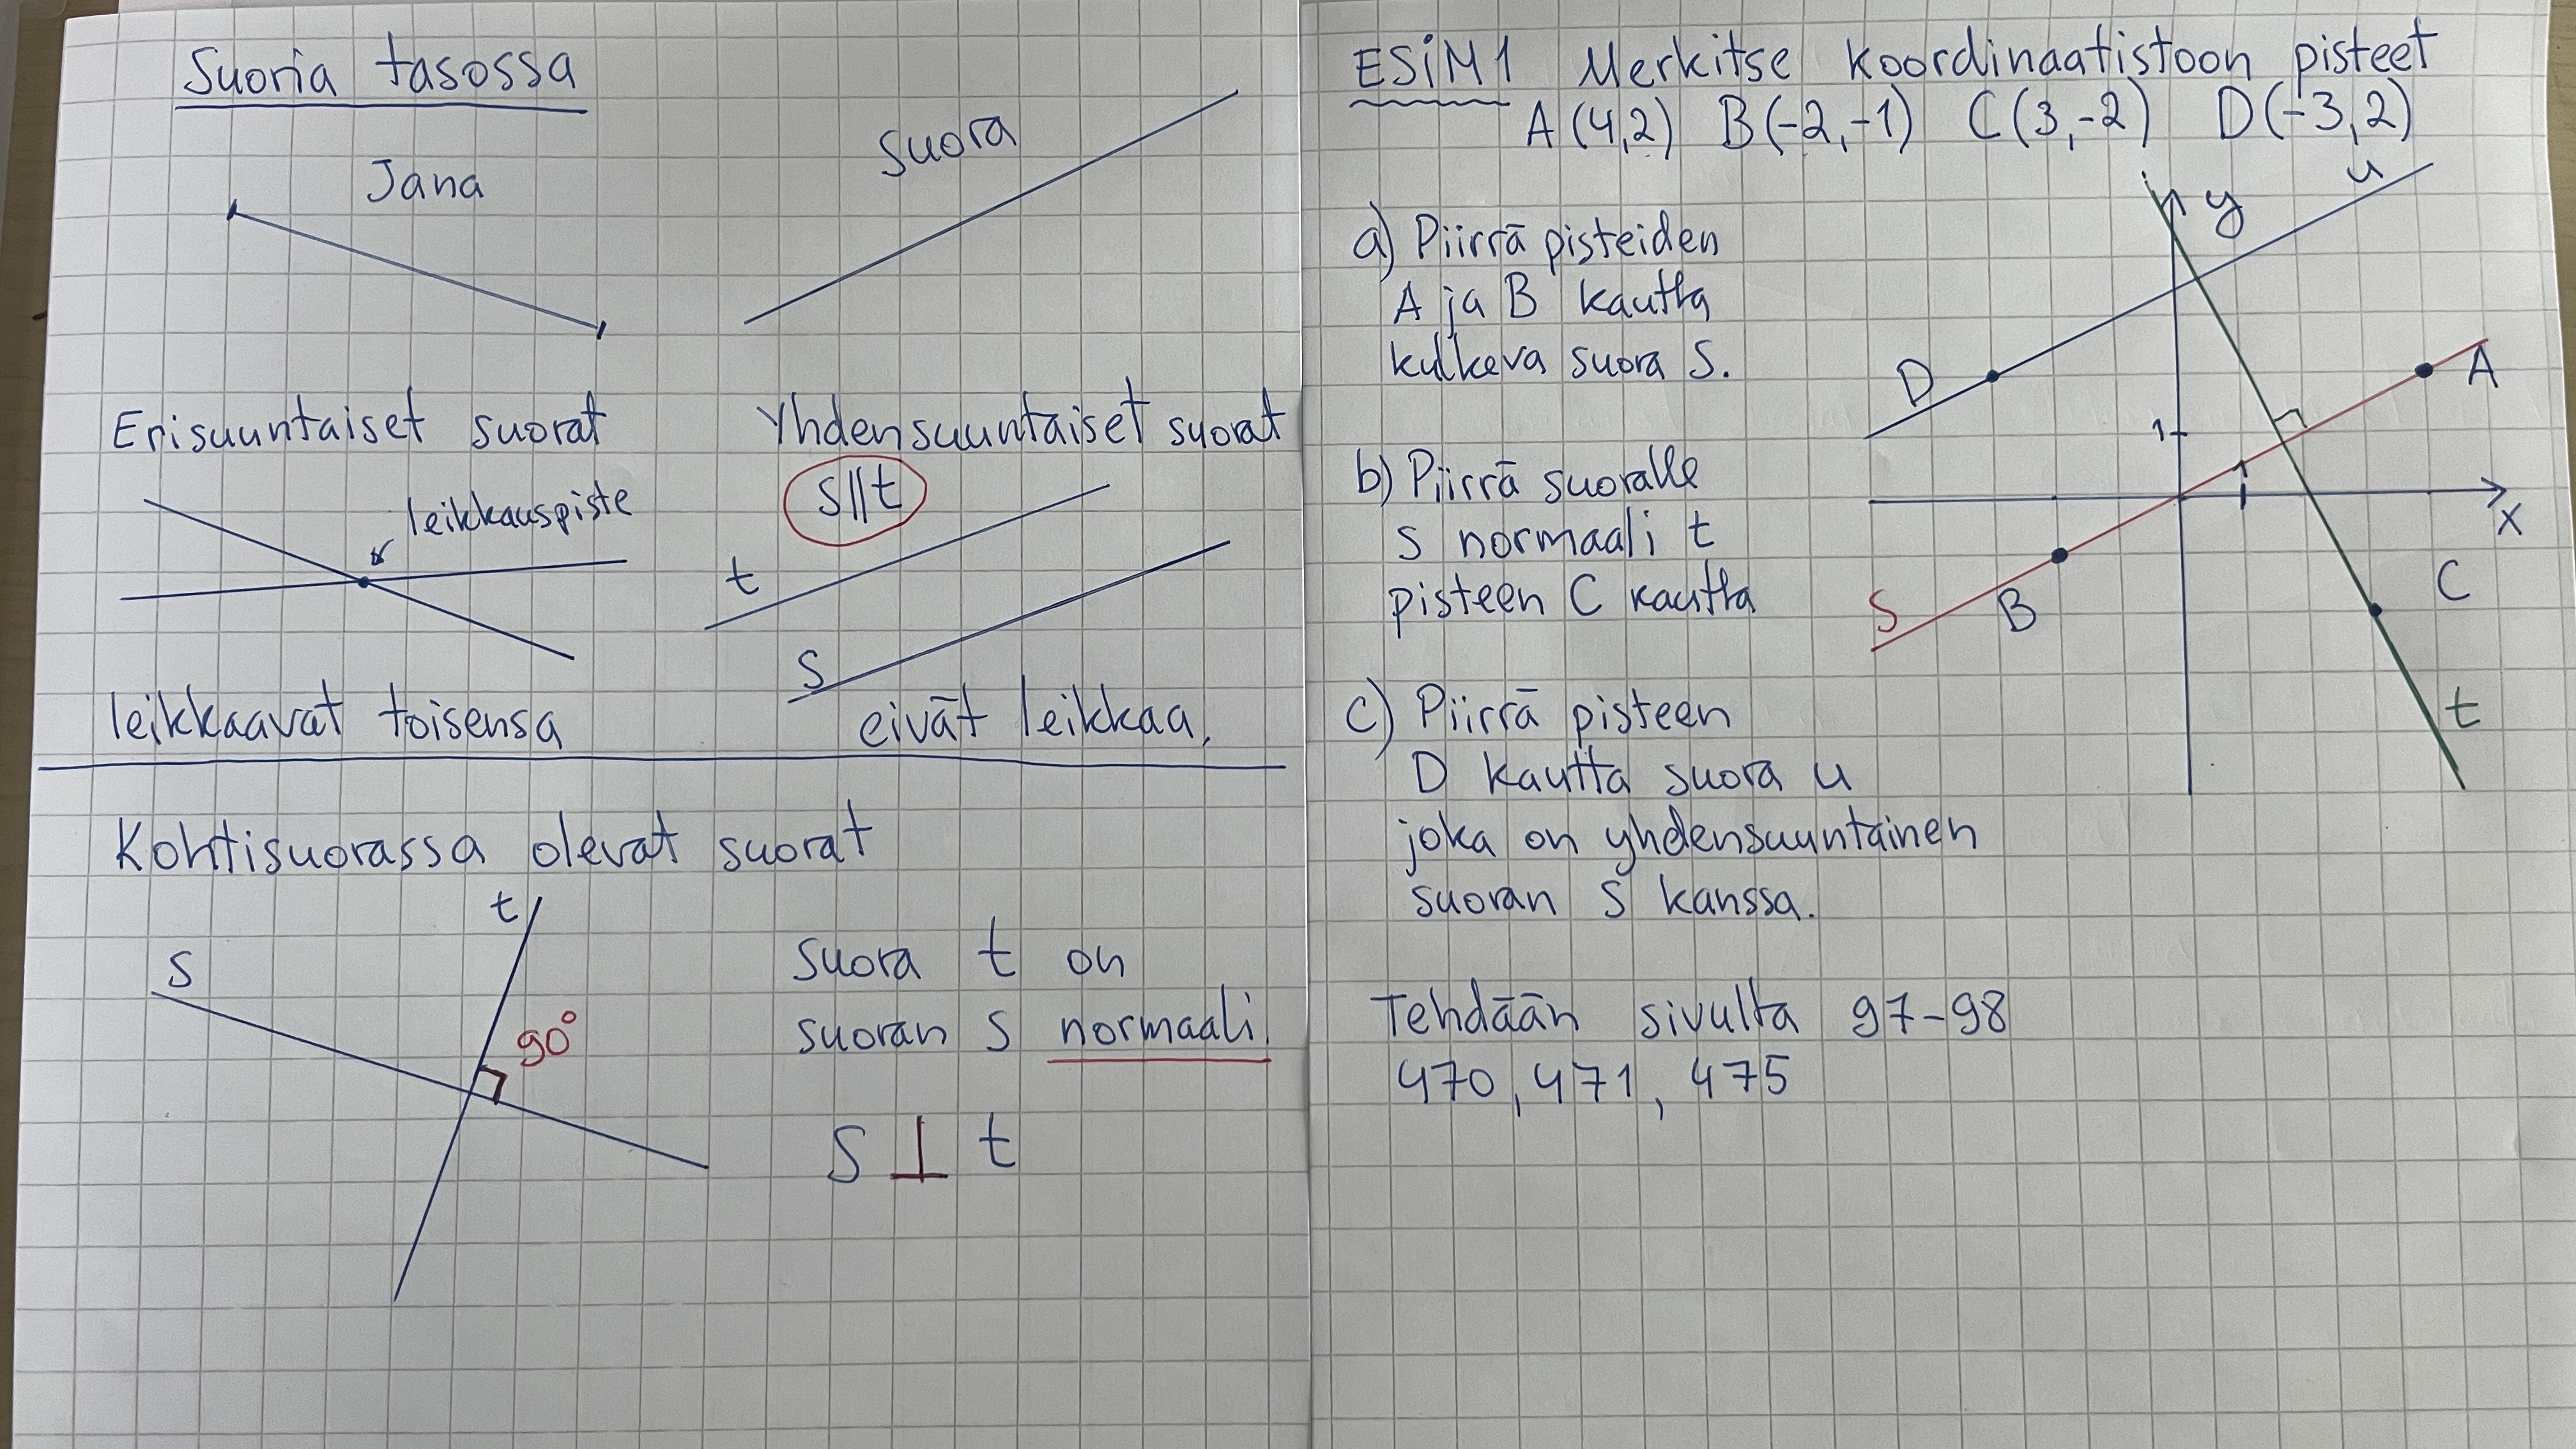 Suoria tasossa
Jana
suora
Erisuuntaiset suorat
leikkauspiste
leikkaavat toisensa
Yhdensuuntaiset suorat
s||t
t
s
eivät leikkaa.
Kohtisuorassa olevat suorat
t
s
90°
suora t on
suoran s normaali.
s ⊥ t
ESIM1 Merkitse koordinaatistoon pisteet
A(4,2) B(-2,-1) C(3,-2) D(-3,2)
a) Piirrä pisteiden
A ja B kautta
kulkeva suora s.
b) Piirrä suoralle
s normaali t
pisteen C kautta
c) Piirrä pisteen
D kautta suora u
joka on yhdensuuntainen
suoran s kanssa.
u
y
D
A
1
1
x
S
B
C
t
Tehdään sivulta 97-98
470, 471, 475